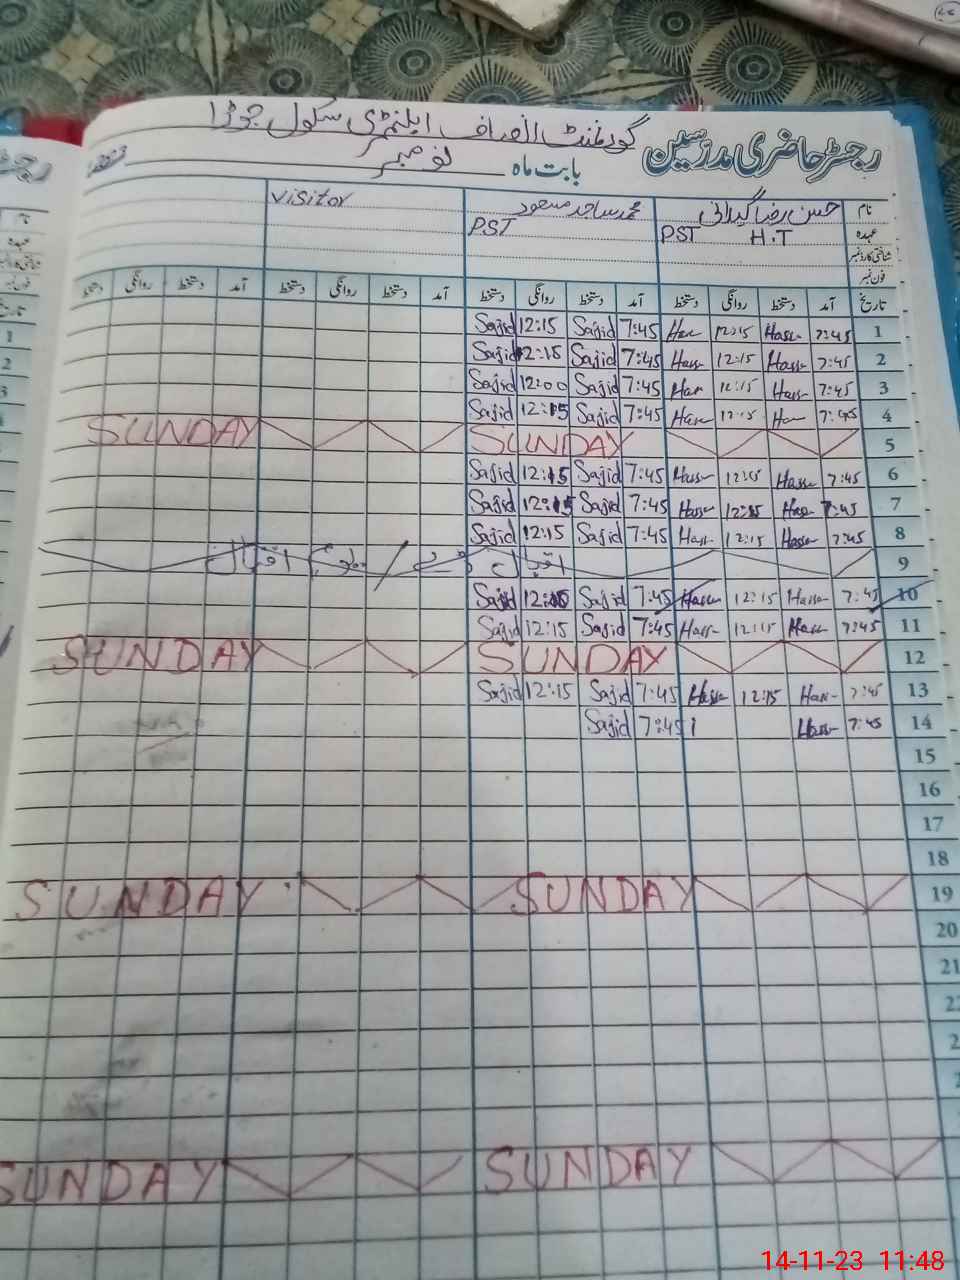 گورنمنٹ انصاف ایلیمنٹری سکول جوڑا
رجسٹر حاضری مدرسین
بابت ماہ نومبر
نام حسن رضا گیلانی محمد ساجد مسعود Visitor
عہدہ PST H.T PST
شناختی کارڈ نمبر
فون نمبر
تاریخ آمد دستخط روانگی دستخط آمد دستخط روانگی دستخط آمد دستخط روانگی دستخط آمد دستخط روانگی دستخط
Sajid 12:15 Sajid 7:45 12:15 Hassn 7:45 1
Sajid 12:15 Sajid 7:45 Hassn 12:15 Hassn 7:45 2
Sajid 12:00 Sajid 7:45 12:15 Hassn 7:45 3
Sajid 12:15 Sajid 7:45 Hassn 12:15 7:45 4
SUNDAY SUNDAY 5
Sajid 12:15 Sajid 7:45 Hassn 12:15 Hassn 7:45 6
Sajid 12:15 Sajid 7:45 Hassn 12:15 Hassn 7:45 7
Sajid 12:15 Sajid 7:45 Hassn 12:15 Hassn 7:45 8
9 اقبال ڈے / یوم اقبال
Sajid Sajid 7:45 Hassn 12:15 Hassn 7:45 10
Sajid 12:15 Sajid 7:45 Hassn 12:15 Hassn 7:45 11
SUNDAY SUNDAY 12
Sajid 12:15 Sajid 7:45 Hassn 12:15 Hassn 7:45 13
Sajid 7:45 Hassn 7:45 14
15
16
17
18
SUNDAY SUNDAY 19
20
21
SUNDAY SUNDAY
14-11-23 11:48